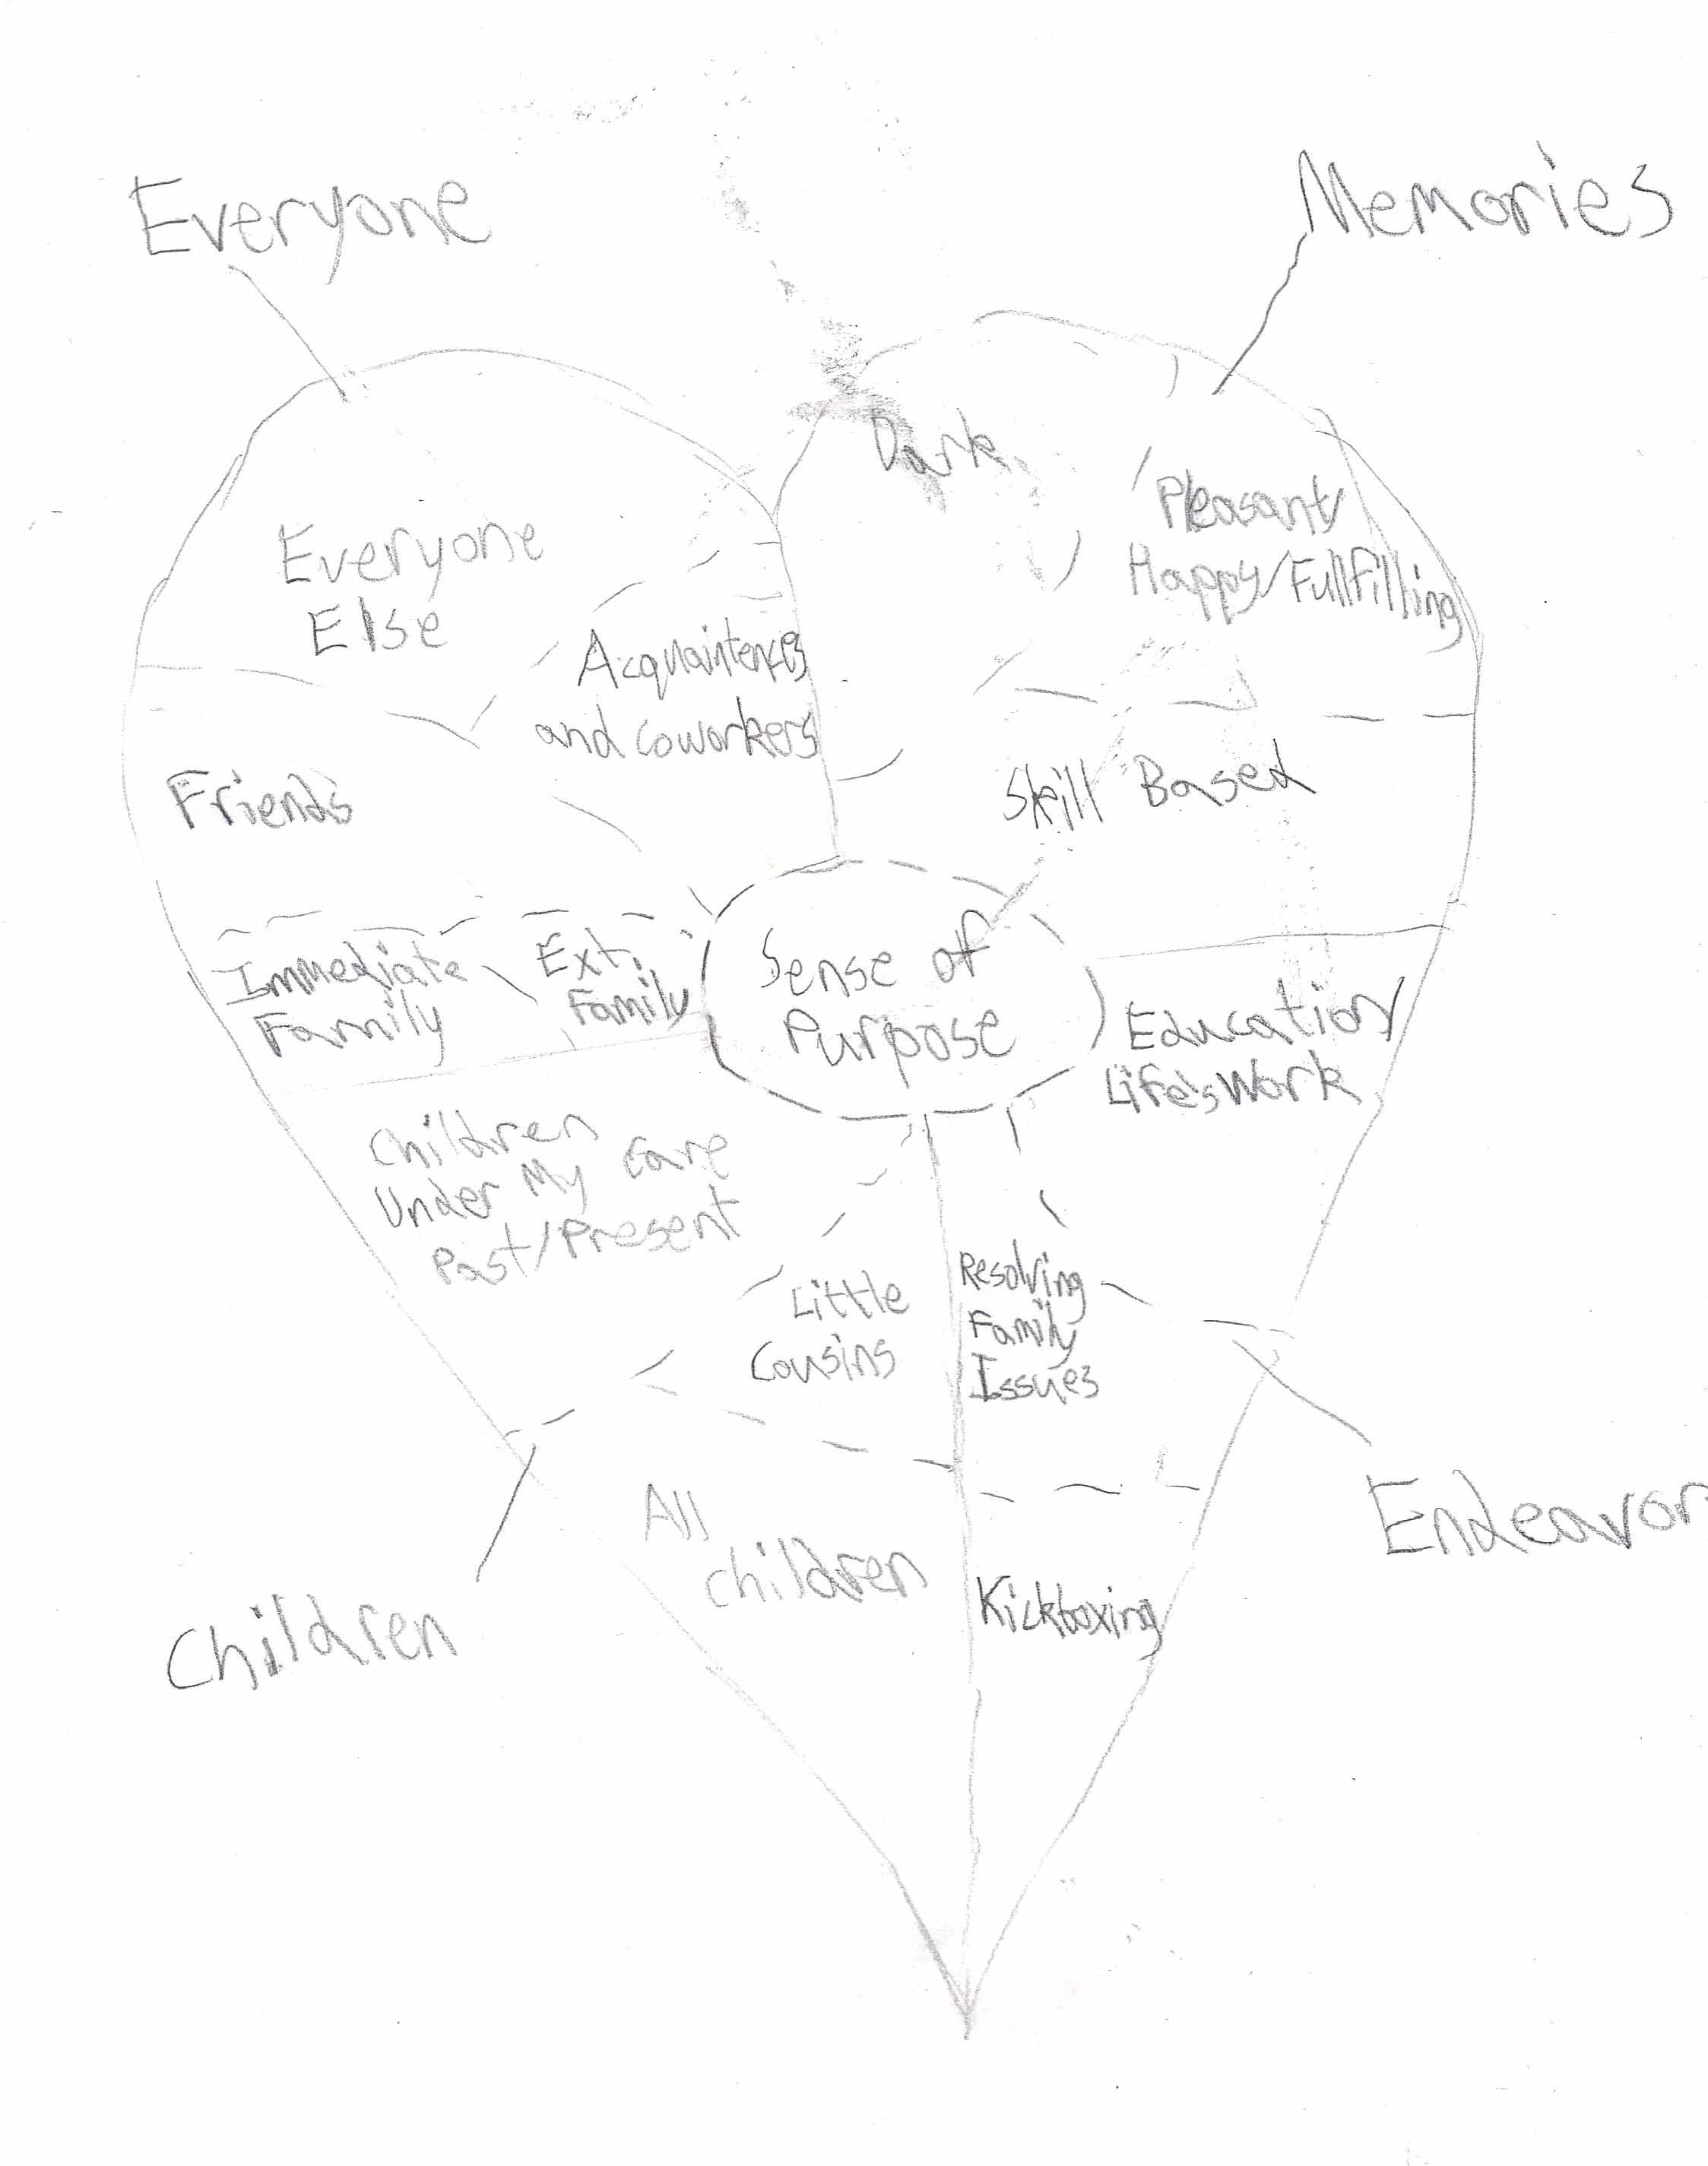 Everyone
Memories
Everyone
Else
Acquaintences
and coworkers
Friends
Immediate
Family
Ext.
Family
Dark
Pleasant/
Happy/Fullfilling
Skill Based
Sense of
Purpose
Education/
Life's Work
Children
Under My Care
Past/Present
Little
Cousins
All
children
Resolving
Family
Issues
Kickboxing
Children
Endeavor